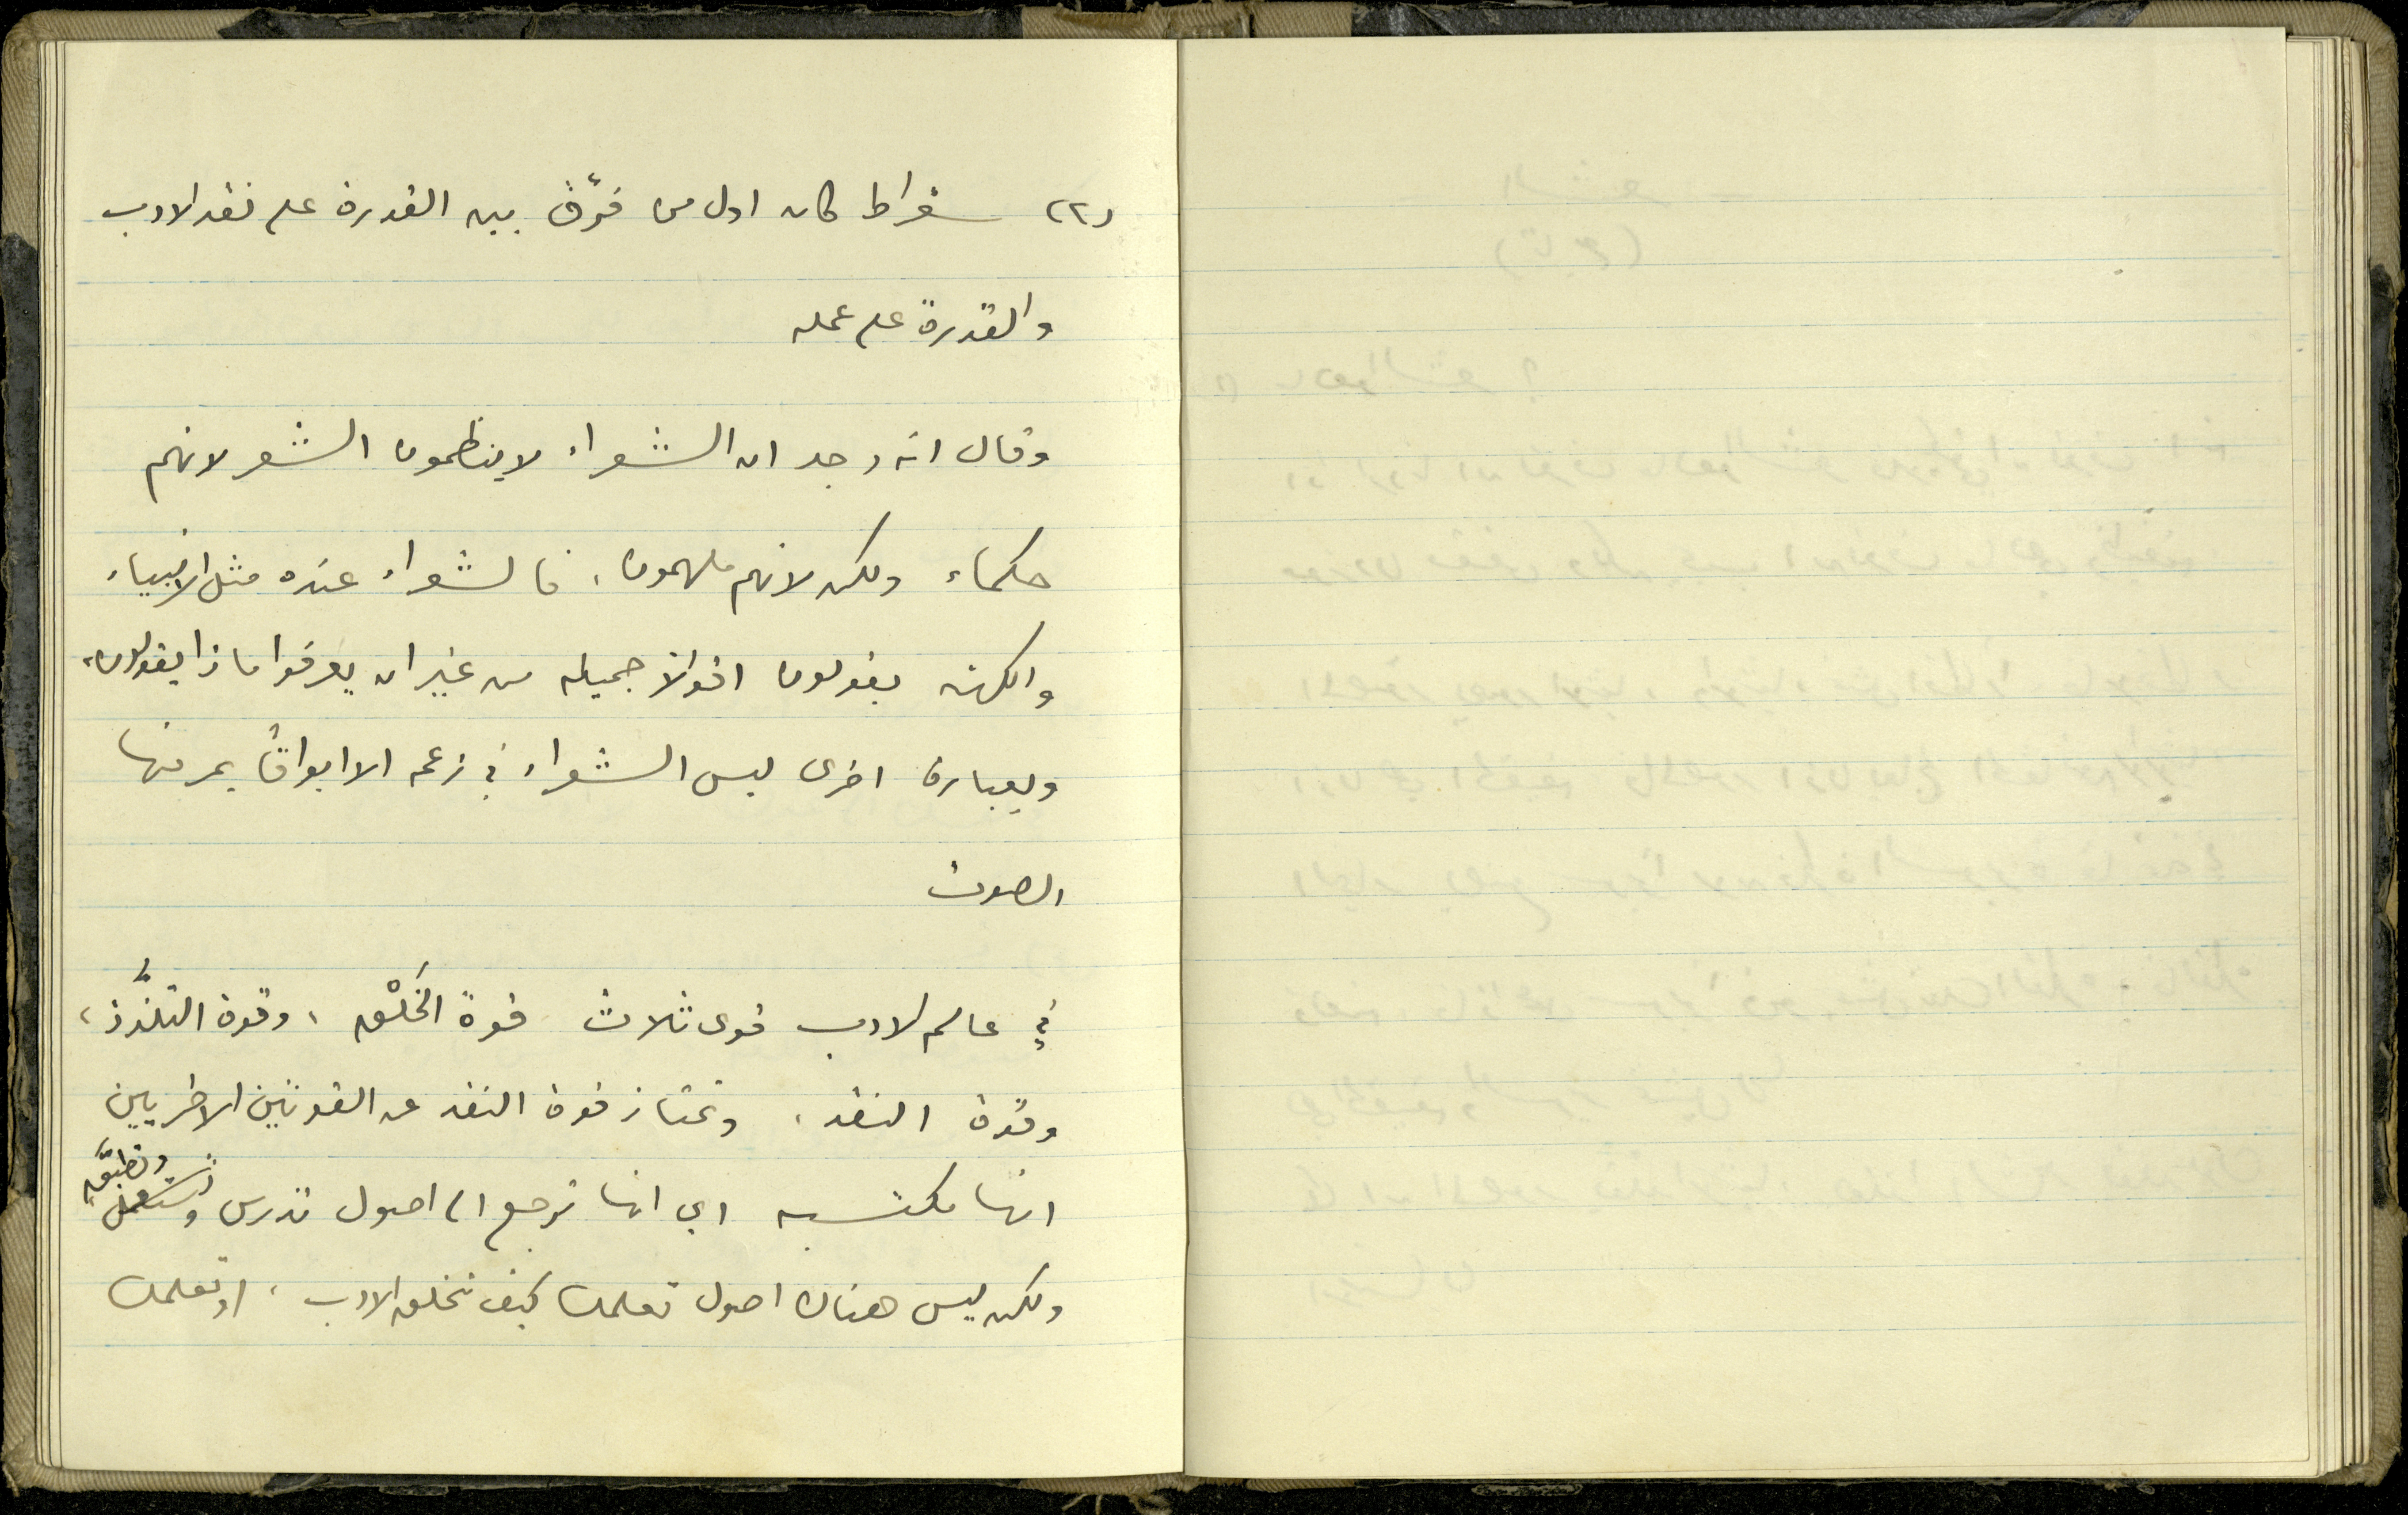 (٢) سقراط كان اول من فرَّق بين القدرة على نقد الادب
والقدرة على عمله
وقال انه وجد ان الشعراء لا ينظمون الشعر لانهم
حكماء ولكن لانهم ملهمون، فالشعراء عنده مثل الانبياء
والكهنه يقولون اقوالاً جميله من غير ان يعرفوا ماذا يقولون،
وبعبارة اخرى ليس الشعراء في زعمه الا ابواقاً يمر منها
الصوت
في عالم الادب قوى ثلاث قوة الخَلْق، وقوة التلذُّذ،
وقوة النقد، وتمتاز قوة النقد عن القوتين الاخريين
وتطبَّق
انها مكتسبه اي انها ترجع الى اصول تدرس وتستعمل،
ولكن ليس هناك اصول تعلمك كيف تخلق الادب، او تعلمك